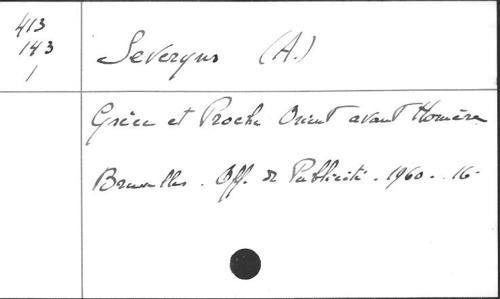 413
143
1
Severyns (A.)
Grèce et Proche Orient avant Homère
Bruxelles. Off. de Publicité. 1960. 16-